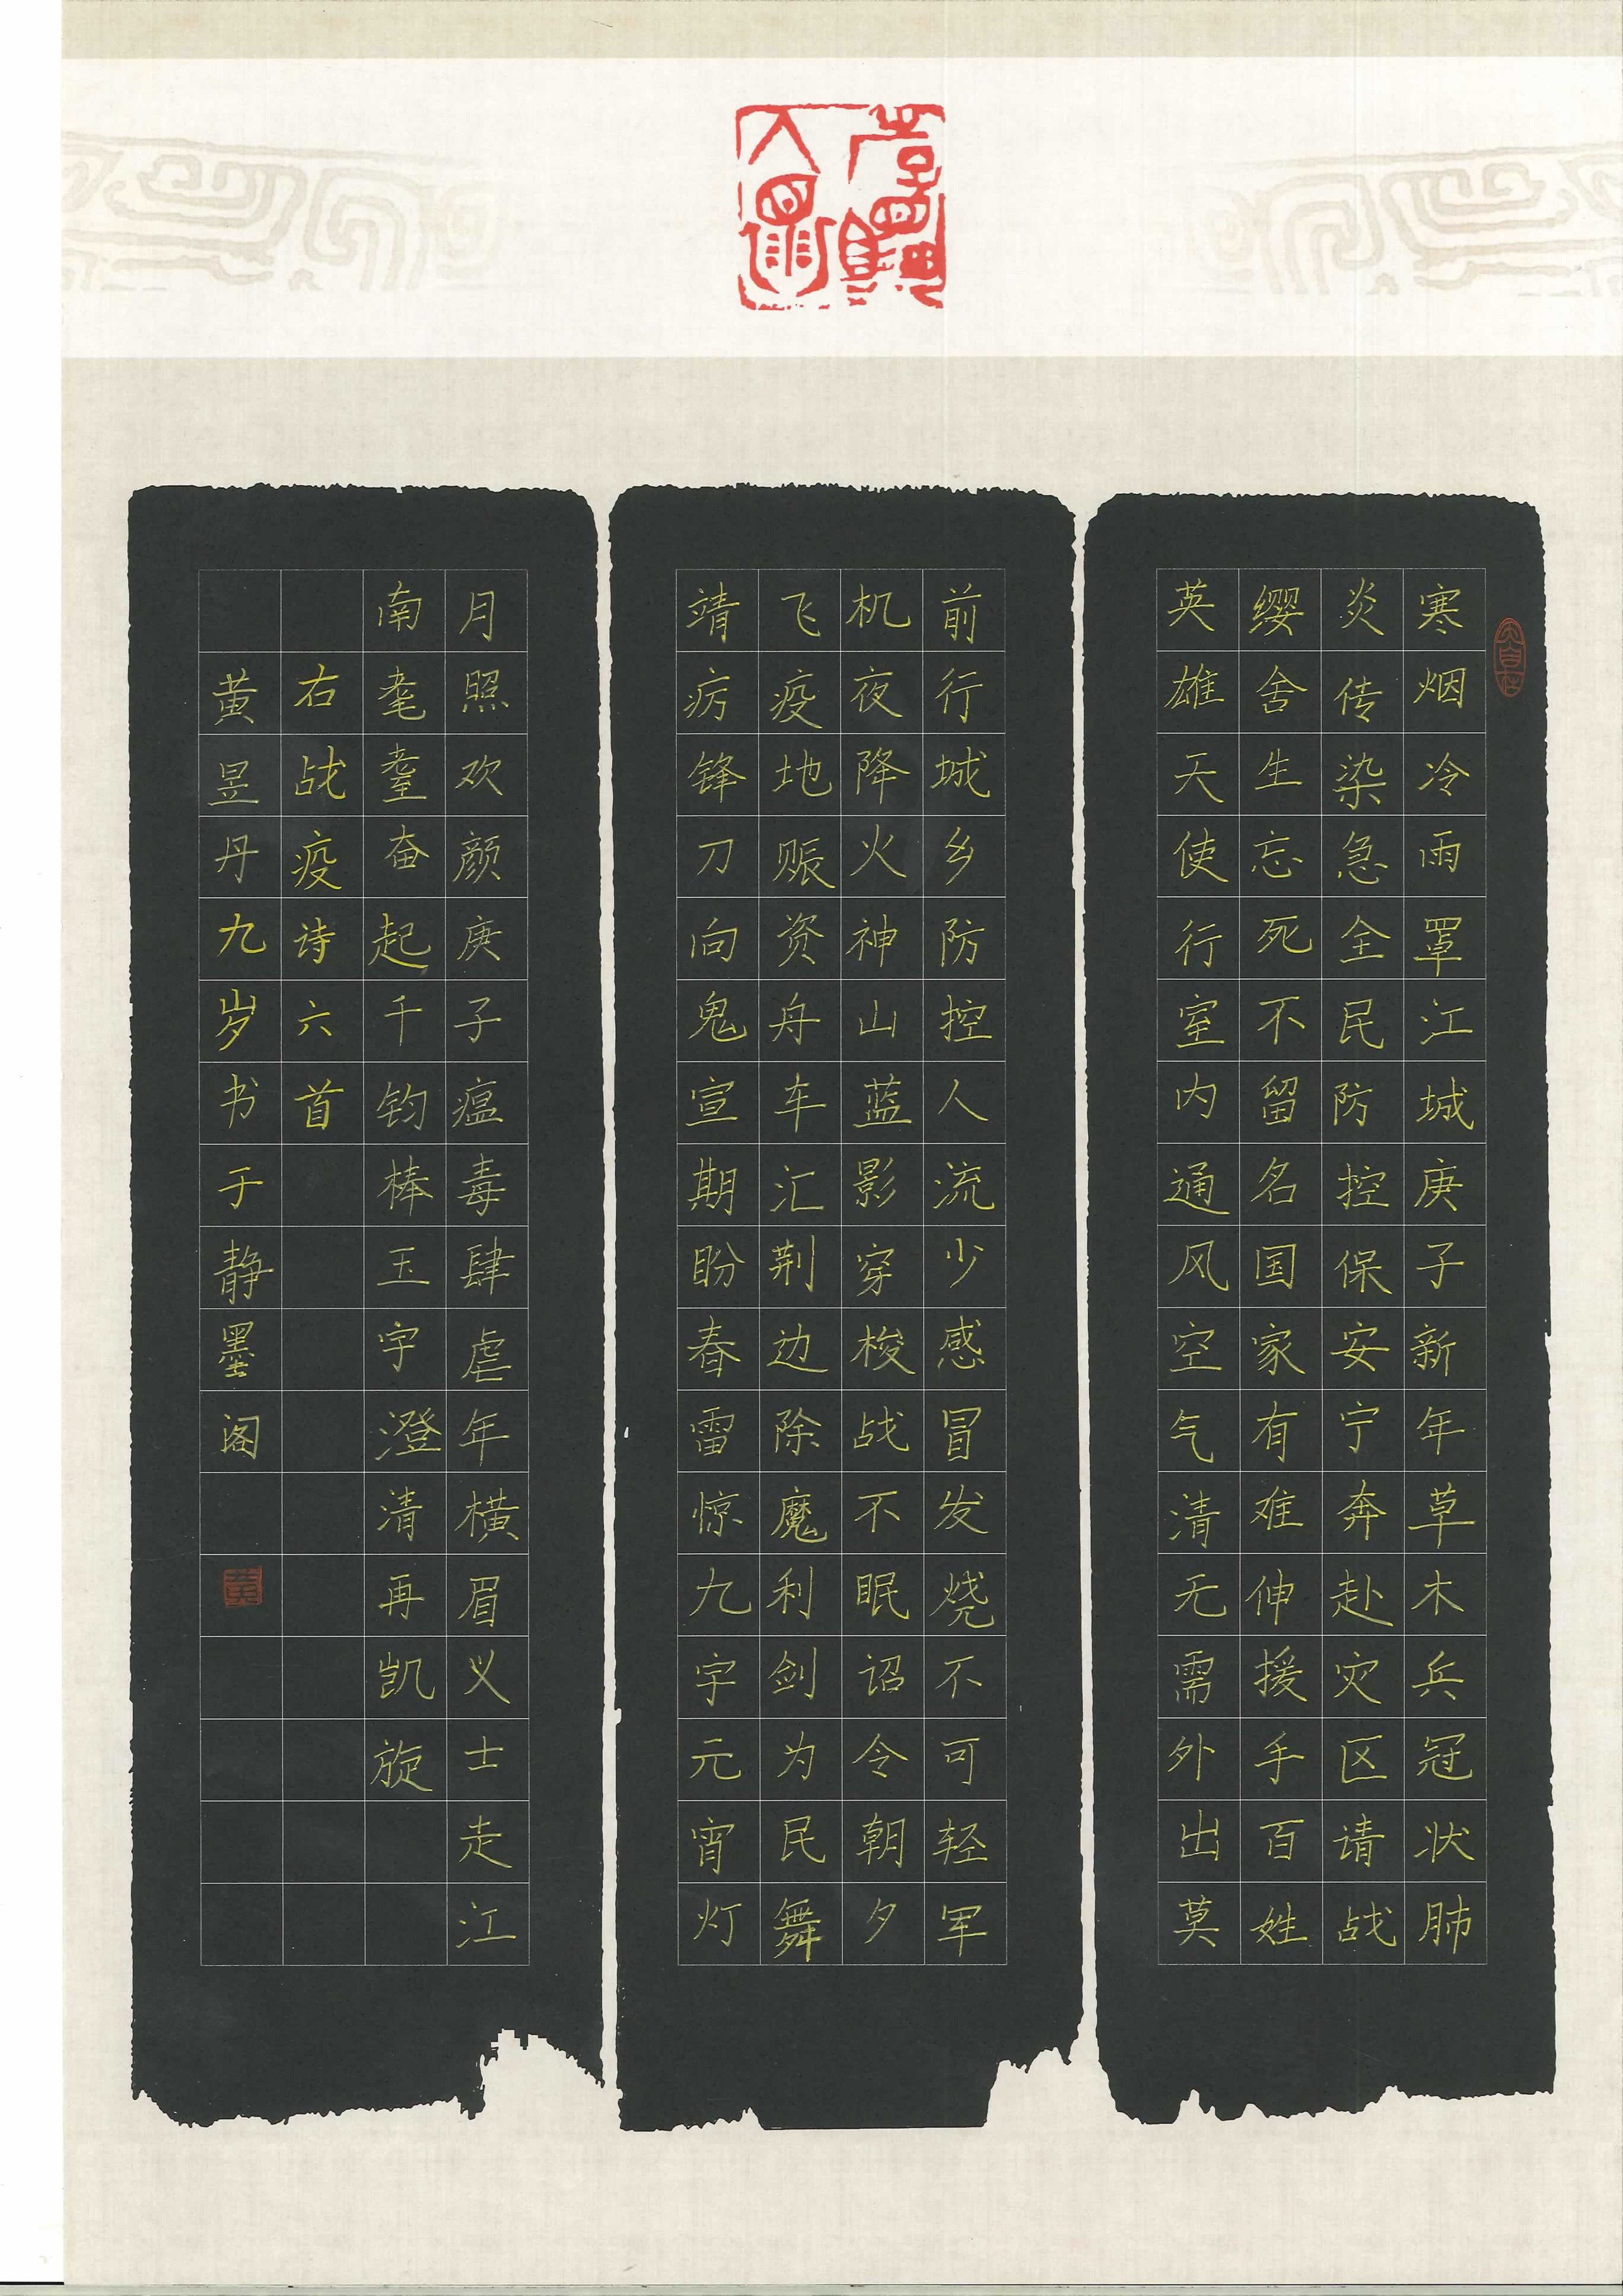 寒烟冷雨罩江城庚子新年草木兵冠状肺
炎传染急全民防控保安宁奔赴灾区请战
缨舍生忘死不留名国家有难伸援手百姓
英雄天使行室内通风空气清无需外出莫
前行城乡防控人流少感冒发烧不可轻军
机夜降火神山蓝影穿梭战不眠诏令朝夕
飞疫地赈资舟车汇荆边除魔利剑为民舞
靖疠锋刀向鬼宣期盼春雷惊九宇元宵灯
月照欢颜庚子瘟毒肆虐年横眉义士走江
南耄耋奋起千钧棒玉宇澄清再凯旋
右战疫诗六首
黄昱丹九岁书于静墨阁